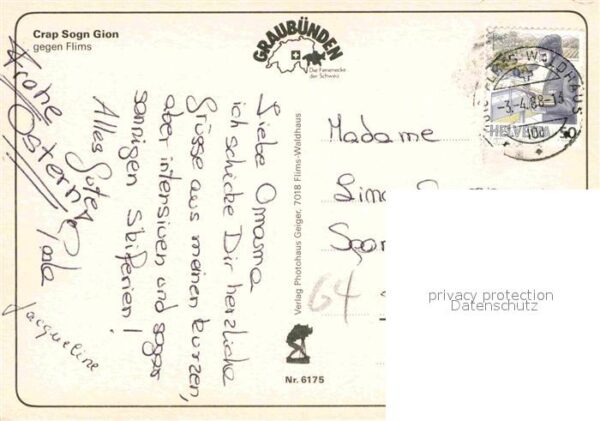 Crap Sogn Gion
gegen Flims
GRAUBÜNDEN
Die Ferienecke
der Schweiz
Frohe
Ostern
Liebe Omama
ich schicke Dir herzliche
Grüsse aus meinen kurzen,
aber intensiven und sogar
sonnigen Skiferien!
Alles Gute
Jacqueline
Verlag Photohaus Geiger, 7018 Flims-Waldhaus
Nr. 6175
Madame
64
WALDHAUS
-3.-4.88-18
HELVETIA
50
privacy protection
Datenschutz